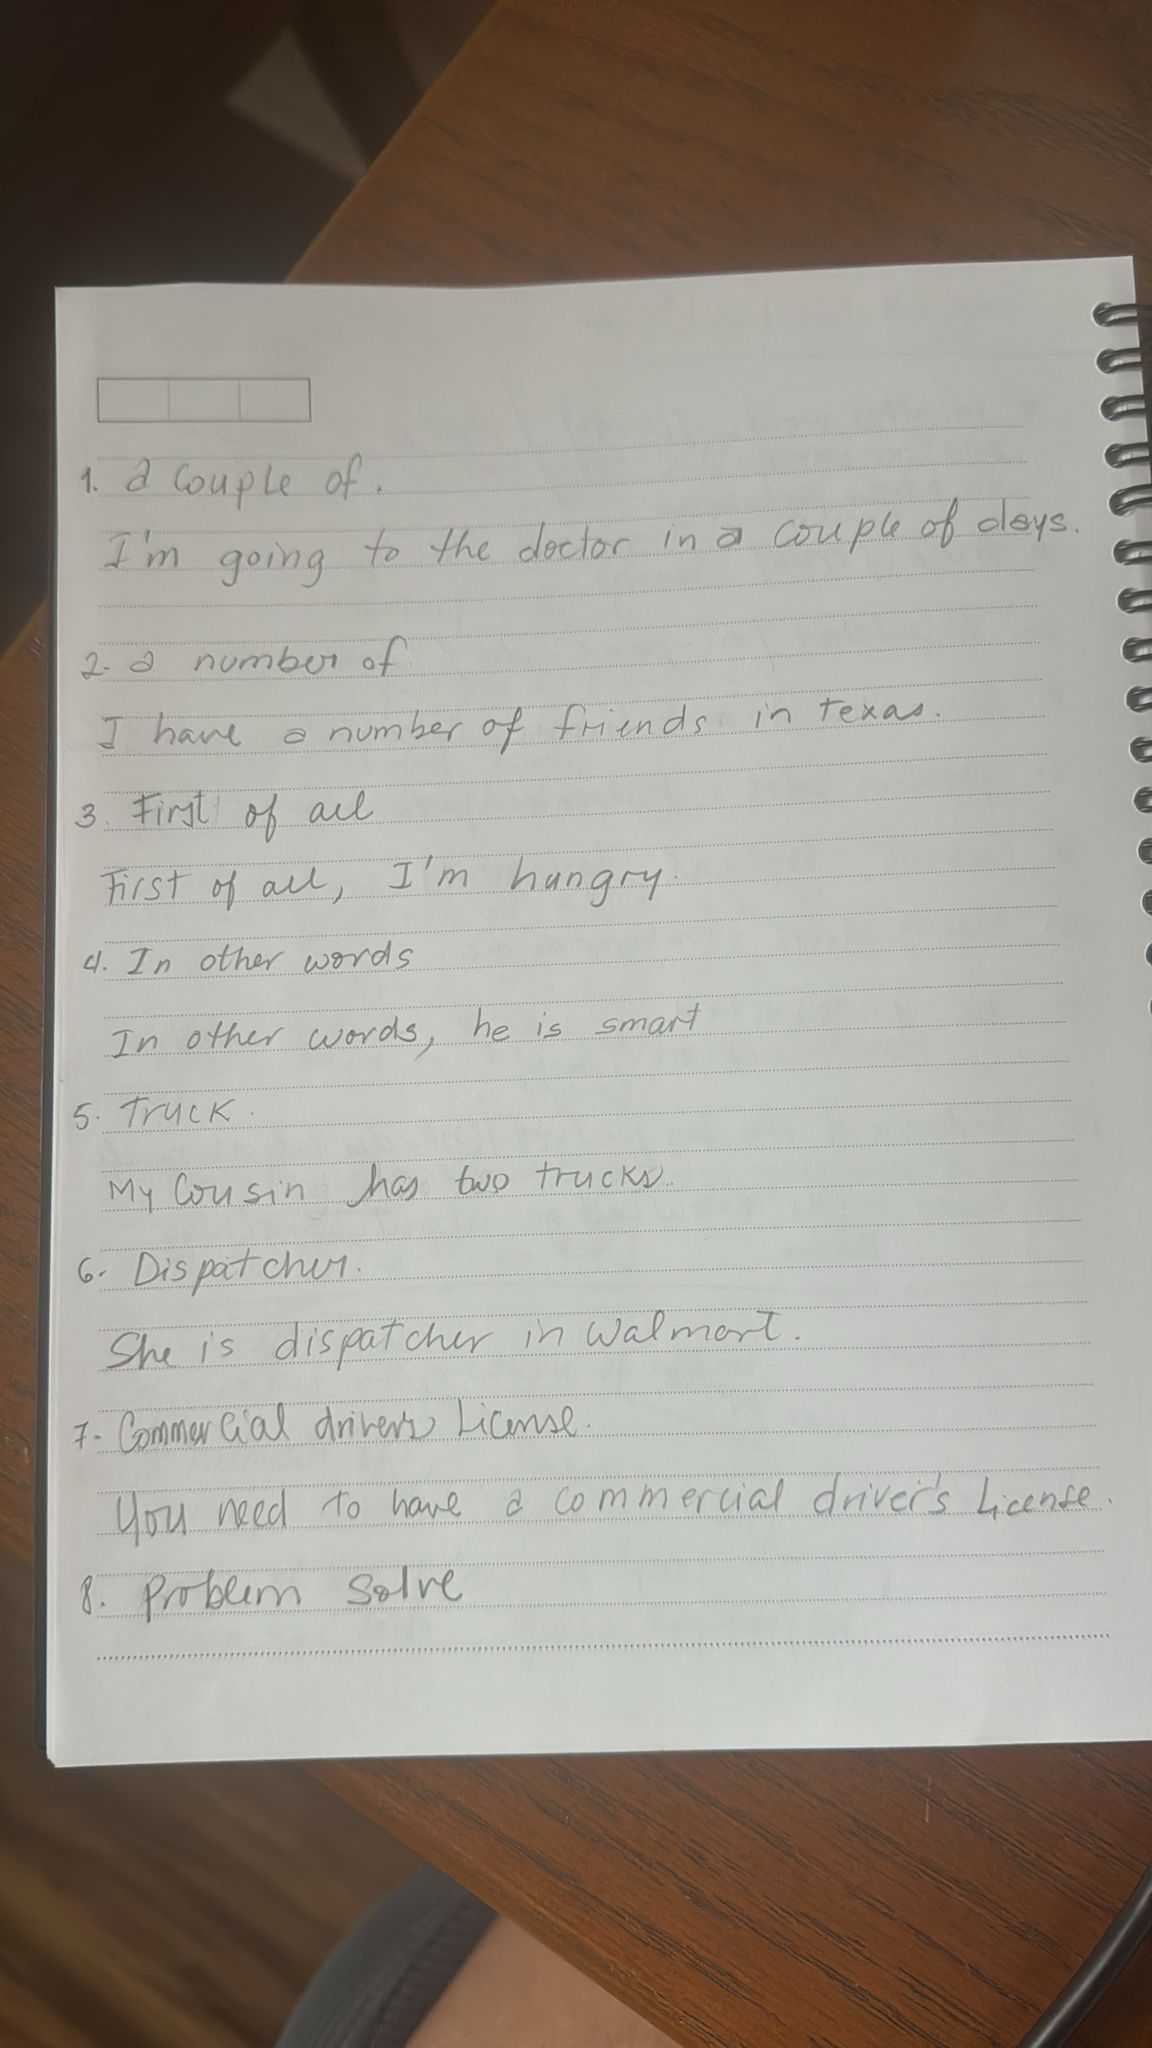 1. a couple of.
I'm going to the doctor in a couple of days.
2. a number of.
I have a number of friends in texas.
3. First of all
First of all, I'm hungry.
4. In other words
In other words, he is smart
5. Truck.
My Cousin has two trucks.
6. Dispatcher.
She is dispatcher in Walmart.
7- Commercial drivers License.
You need to have a commercial driver's License.
8. Problem Solve